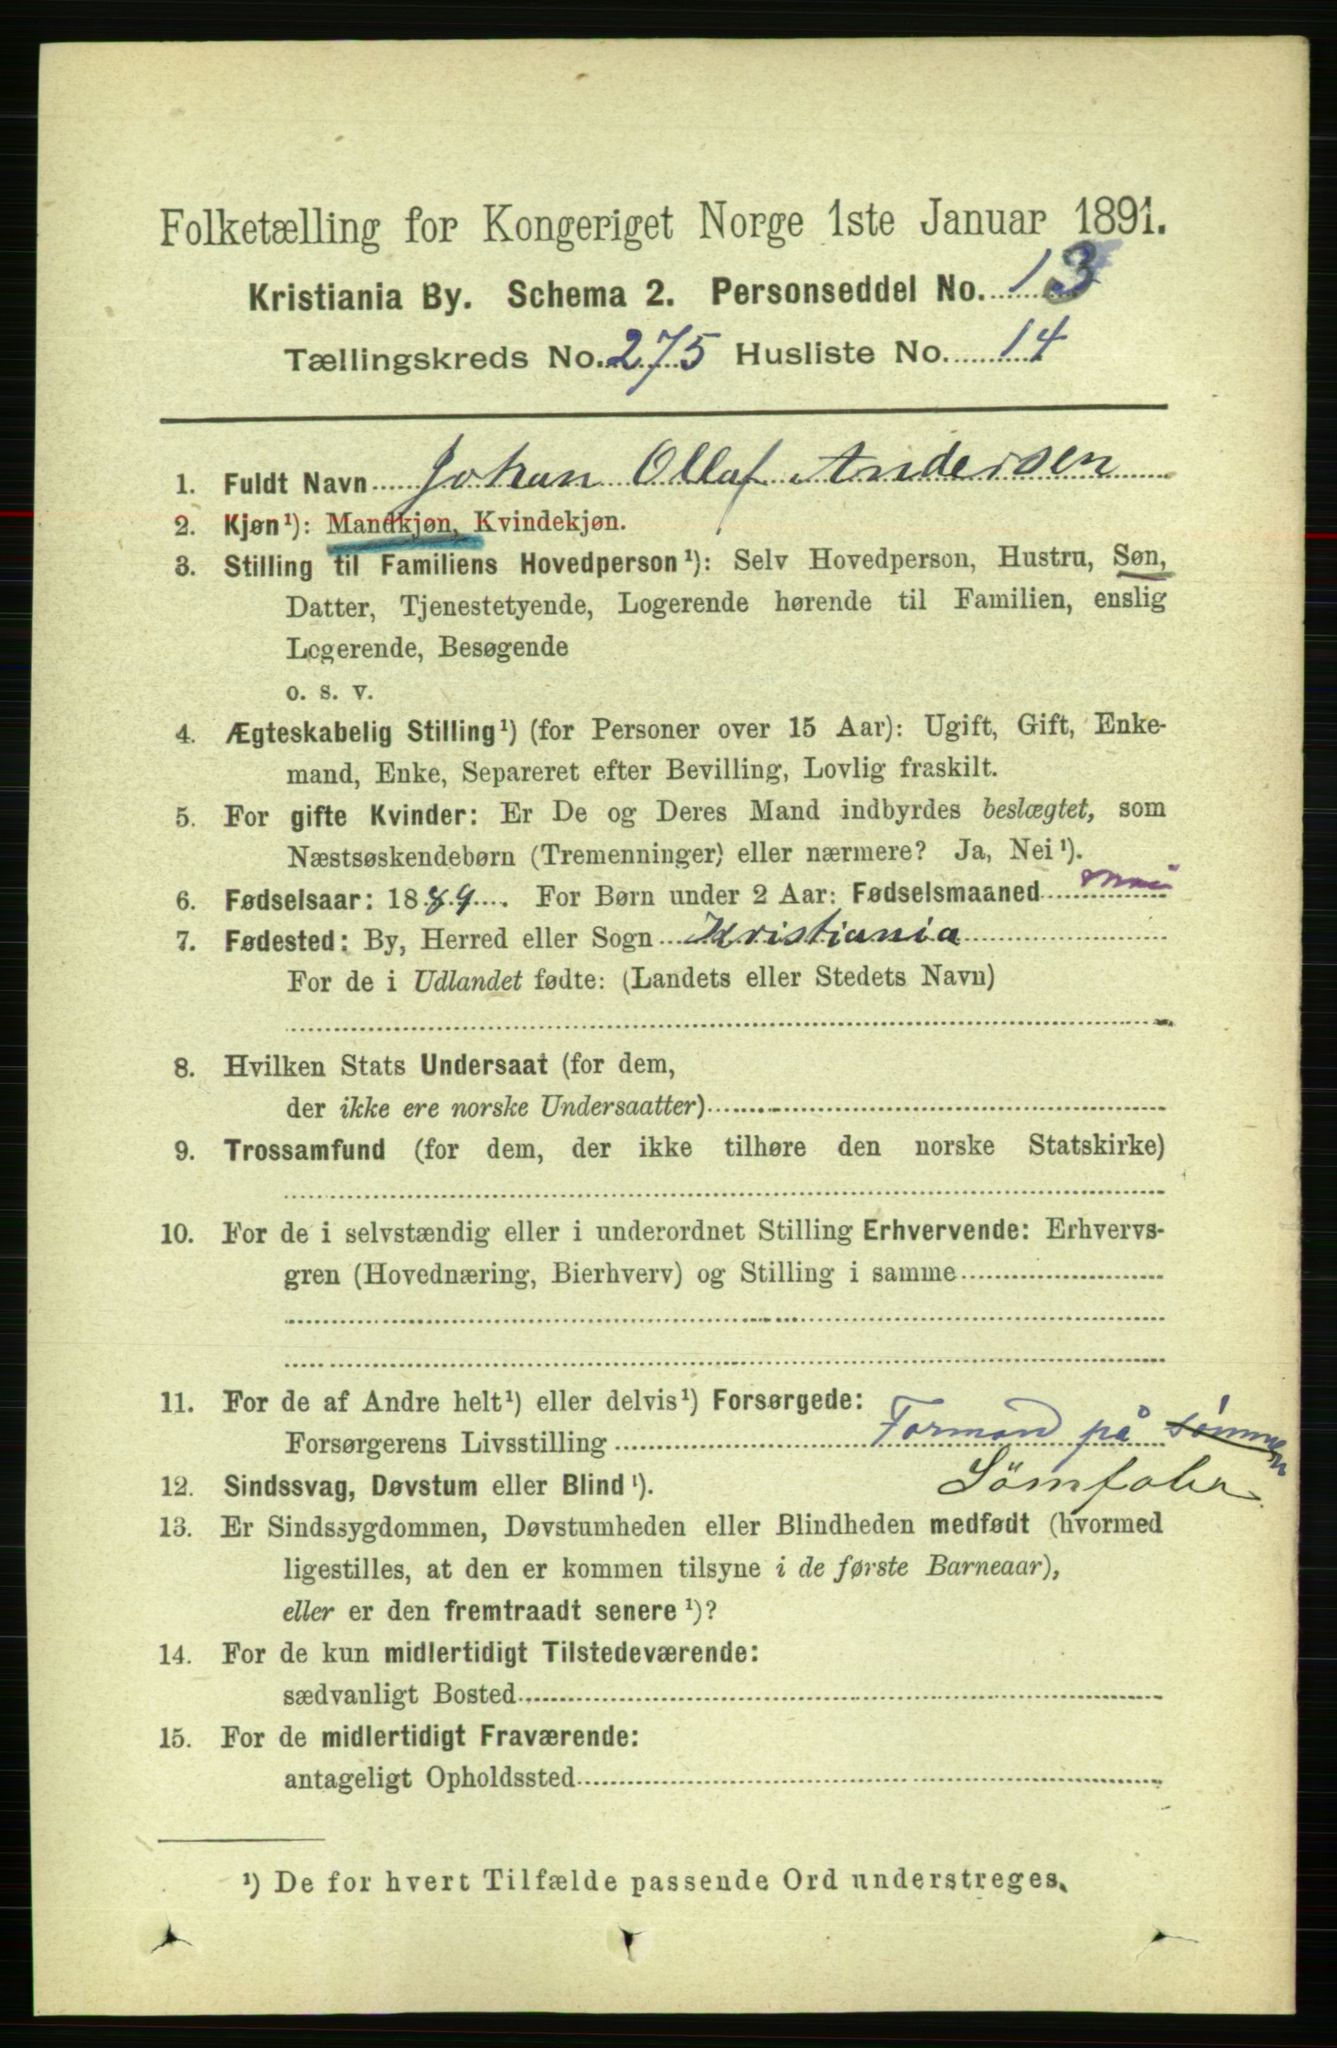 Folketælling for Kongeriget Norge 1ste Januar 1891.
Kristiania By. Schema 2. Personseddel No. 13
Tællingskreds No. 275 Husliste No. 14
1. Fuldt Navn Johan Ollaf Andersen
2. Kjøn¹): Mandkjøn, Kvindekjøn.
3. Stilling til Familiens Hovedperson¹): Selv Hovedperson, Hustru, Søn,
Datter, Tjenestetyende, Logerende hørende til Familien, enslig
Logerende, Besøgende
o. s. v.
4. Ægteskabelig Stilling¹) (for Personer over 15 Aar): Ugift, Gift, Enke-
mand, Enke, Separeret efter Bevilling, Lovlig fraskilt.
5. For gifte Kvinder: Er De og Deres Mand indbyrdes beslægtet, som
Næstsøskendebørn (Tremenninger) eller nærmere? Ja, Nei¹).
6. Fødselsaar: 1889. For Børn under 2 Aar: Fødselsmaaned Mai
7. Fødested: By, Herred eller Sogn Kristiania
For de i Udlandet fødte: (Landets eller Stedets Navn)
8. Hvilken Stats Undersaat (for dem,
der ikke ere norske Undersaatter)
9. Trossamfund (for dem, der ikke tilhøre den norske Statskirke)
10. For de i selvstændig eller i underordnet Stilling Erhvervende: Erhvervs-
gren (Hovednæring, Bierhverv) og Stilling i samme
11. For de af Andre helt¹) eller delvis¹) Forsørgede:
Forsørgerens Livsstilling Formand på
12. Sindssvag, Døvstum eller Blind¹).
13. Er Sindssygdommen, Døvstumheden eller Blindheden medfødt (hvormed
ligestilles, at den er kommen tilsyne i de første Barneaar),
eller er den fremtraadt senere¹)?
14. For de kun midlertidigt Tilstedeværende:
sædvanligt Bosted
15. For de midlertidigt Fraværende:
antageligt Opholdssted
¹) De for hvert Tilfælde passende Ord understreges.